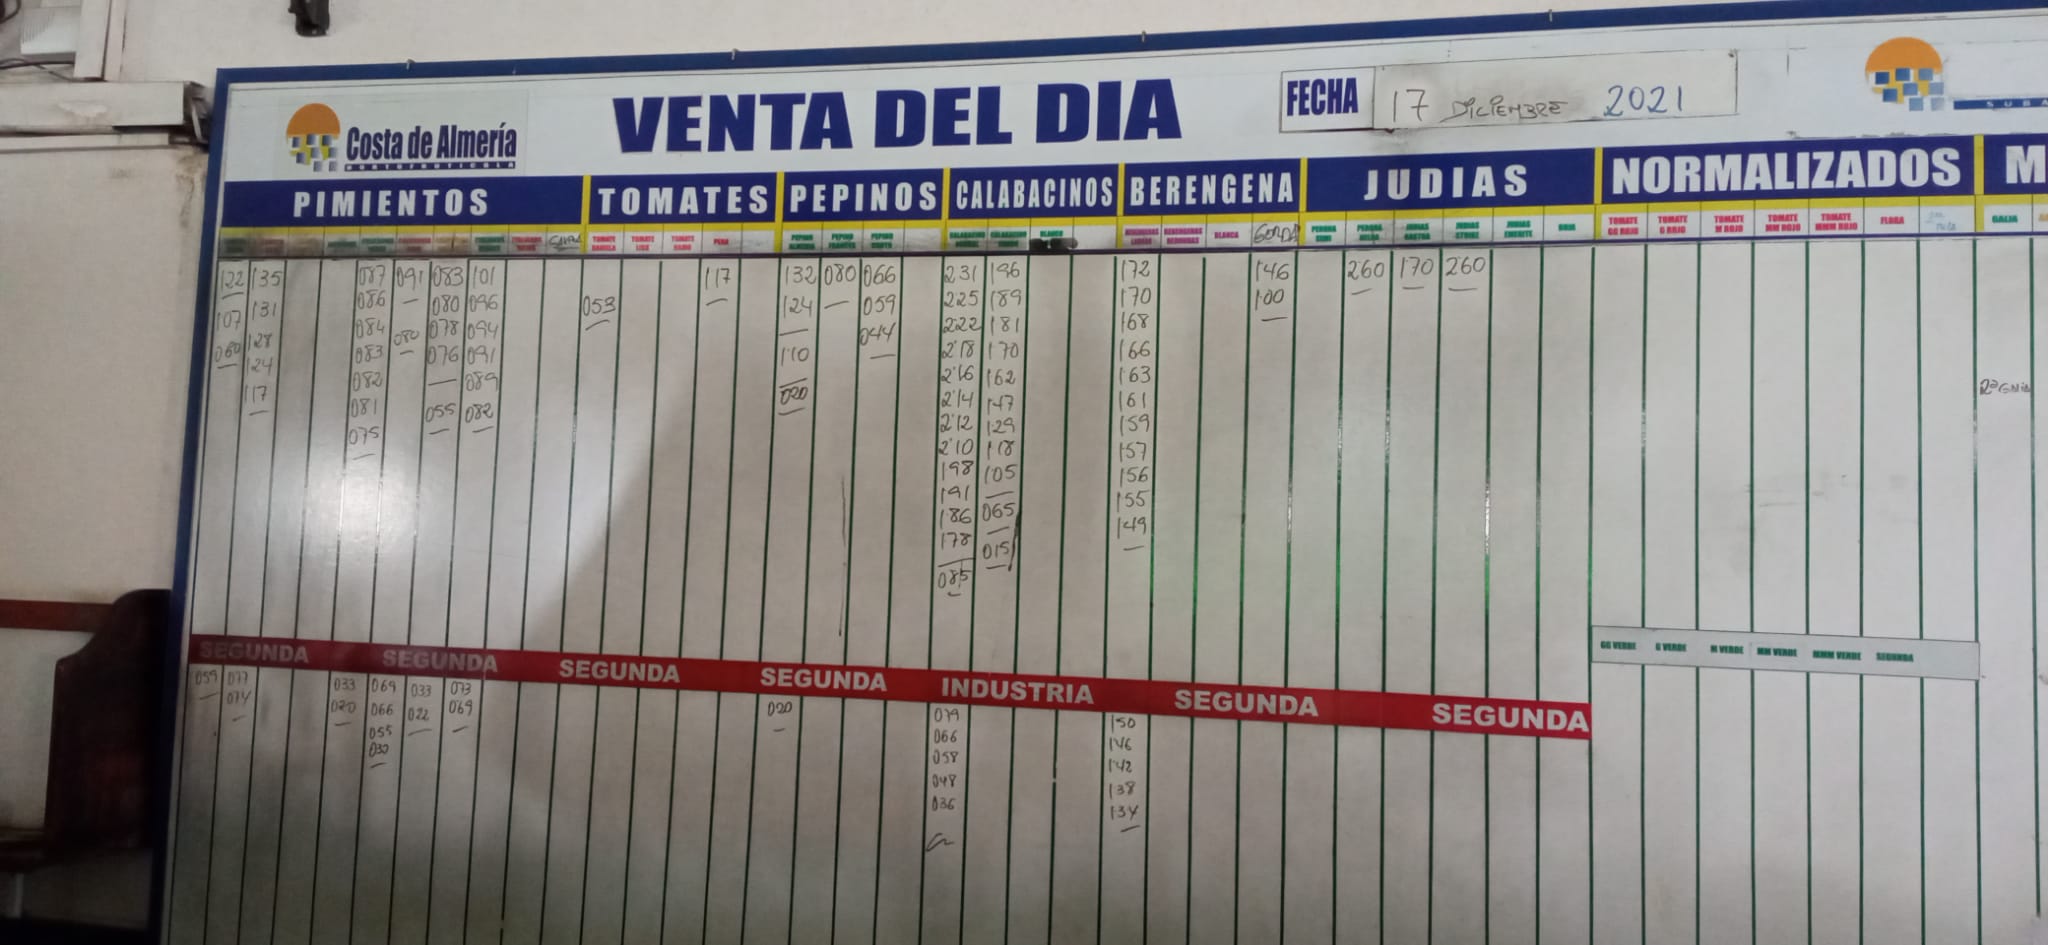 Costa de Almería
HORTOFRUTICOLA
VENTA DEL DIA
FECHA 17 DICIEMBRE 2021
SUBA
PIMIENTOS TOMATES PEPINOS CALABACINOS BERENGENA JUDIAS NORMALIZADOS M
TOMATE DANIELA TOMATE LISO TOMATE RAMO PERA PEPINO ALMERIA PEPINO FRANCES PEPINO CORTO BLANCA GORDA TOMATE GG ROJO TOMATE G ROJO TOMATE M ROJO TOMATE MM ROJO TOMATE MMM ROJO FLORA GALIA
122 135 087 091 083 101 117 132 080 066 231 196 172 146 260 170 260
107 131 086 080 096 053 124 059 225 189 170 100
060 128 084 080 078 094 110 044 222 181 168
124 083 076 091 020 2'18 170 166
117 082 089 2'16 162 163
081 055 082 2'14 147 161
075 2'12 129 159
2'10 118 157
198 105 156
191 065 155
186 015 149
178
085
SEGUNDA SEGUNDA SEGUNDA SEGUNDA INDUSTRIA SEGUNDA SEGUNDA
GG VERDE G VERDE M VERDE MM VERDE MMM VERDE SEGUNDA
059 077 033 069 033 073 020 079 150
074 020 066 022 069 066 146
055 058 142
030 048 138
036 134